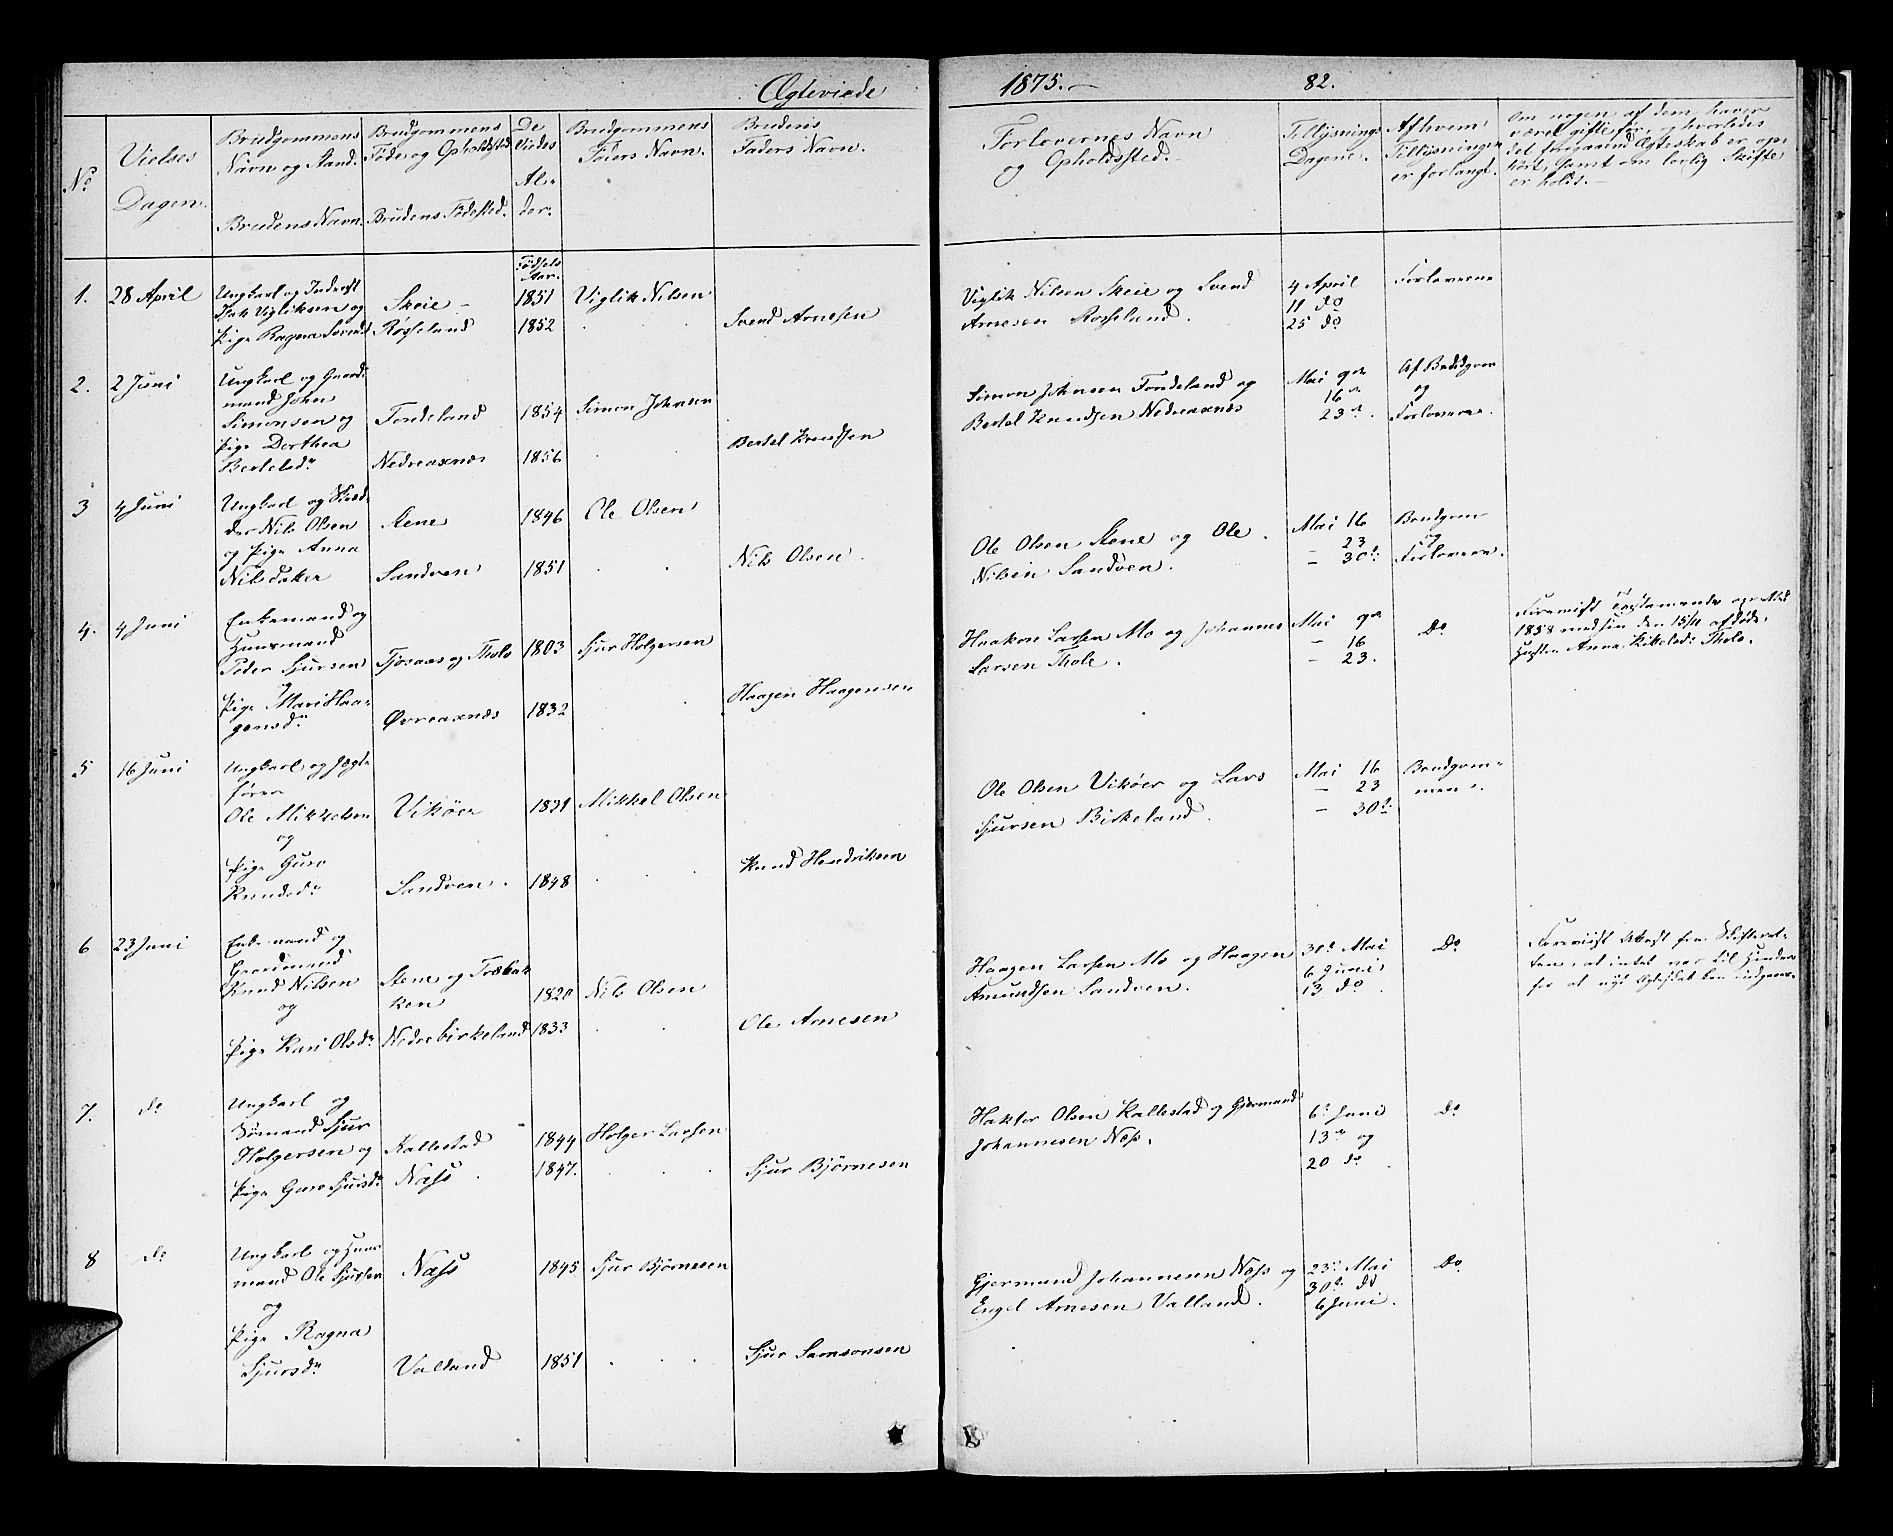 Ægteviede
1875.
82.
No
Vielses
Dagen.
Brudgommens
Navn og Stand.
Brudens Navn.
Brudgommens
Føde og Opholdsted
Brudens Fødested.
De
Viedes
Al-
der.
Brudgommens
Faders Navn.
Brudens
Faders Navn.
Forlovernes Navn
og Opholdssted.
Tillysnings
Dagene.
Af hvem
Tillysningen
er forlangt.
Om nogen af dem haver
været gifte før, og hvorledes
det foregaaend Ægteskab er op-
hørt, samt om lovlig Skifte
er holdt.
Fødsels
Aar.
1. 28 April
Ungkarl og
Vigliksen og
Pige Ragna
Skeie
Rosseland
1851
1852
Viglik Nilsen
Svend Arnesen
Viglik Nilsen Skeie og Svend
Arnesen Rosseland.
4 April
11 do
25 do
Forloverne
2. 2 Juni
Ungkarl og Gaard-
mand John
Simonsen og
Pige Dorthea
Bertelsdr
Tondeland
Nedreaxnæs
1854
1856
Simon Johnsen
Bertel Knudsen
Simon Johnsen Tondeland og
Bertel Knudsen Nedreaxnæs
Mai 9de
16de
23de.
Af Brudgom
og
Forloverne.
3 4 Juni
Ungkarl og Skræd-
der Nils Olsen
og Pige Anna
Nilsdatter
Stene
Sandven
1846
1851
Ole Olsen
Nils Olsen.
Ole Olsen Stene og Ole
Nilsen Sandven.
Mai 16
23
– 30te
Brudgom
og
Forloverne.
4. 4 Juni
Enkemand og
Huusmand
Peder Sjursen
og
Pige Mari Haa-
gensdr
Tjosaas og Thole
Øvreaxnæs
1803
1832
Sjur Holgersen
Haagen Haagensen
Haakon Larsen Mo og Johannes
Larsen Thole.
Mai 9de
– 16
– 23.
Do
Foreviist Testamente
1858 med sin den 15/11 afdøde
Hustru Anna Thole.
5 16 Juni
Ungkarl og Jægte-
fører
Ole Mikkelsen
og
Pige Guro
Knudsdr
Vikøer
Sandven.
1839
1848
Mikkel Olsen
Knud Hendriksen
Ole Olsen Vikøer og Lars
Sjursen Birkeland.
Mai 16
– 23
– 30te
Brudgom-
men.
6 23 Juni
Enkemand og
Gaardmand
Knud Nilsen
og
Pige Kari Olsdr
Stene og Træbak-
ken
Nedrebirkeland
1820
1833
Nils Olsen
Ole Arnesen
Haagen Larsen Mo og Haagen
Amundsen Sandven.
30te Mai
6 Juni
13 do
Do
Foreviist Attest fra Skifteret-
ten, at intet var til Hinder
for at nyt Ægteskab kan indgaaes.
7. do
Ungkarl og
Sømand Sjur
Holgersen og
Pige Guro Sjursdr
Kallestad
Næss
1844
1847.
Holger Larsen
Sjur Bjørnesen
Haktor Olsen Kallestad og Gjermund
Johannesen Næss.
6te Juni
13de og
20 do
Do
8 do
Ungkarl og Huus-
mand Ole Sjursen
og
Pige Ragna
Sjursdr
Næss
Valland
1845
1851
Sjur Bjørnesen
Sjur Samsonsen
Gjermund Johannesen Næss og
Engel Arnesen Valland.
23de Mai
30te do
6 Juni.
Do